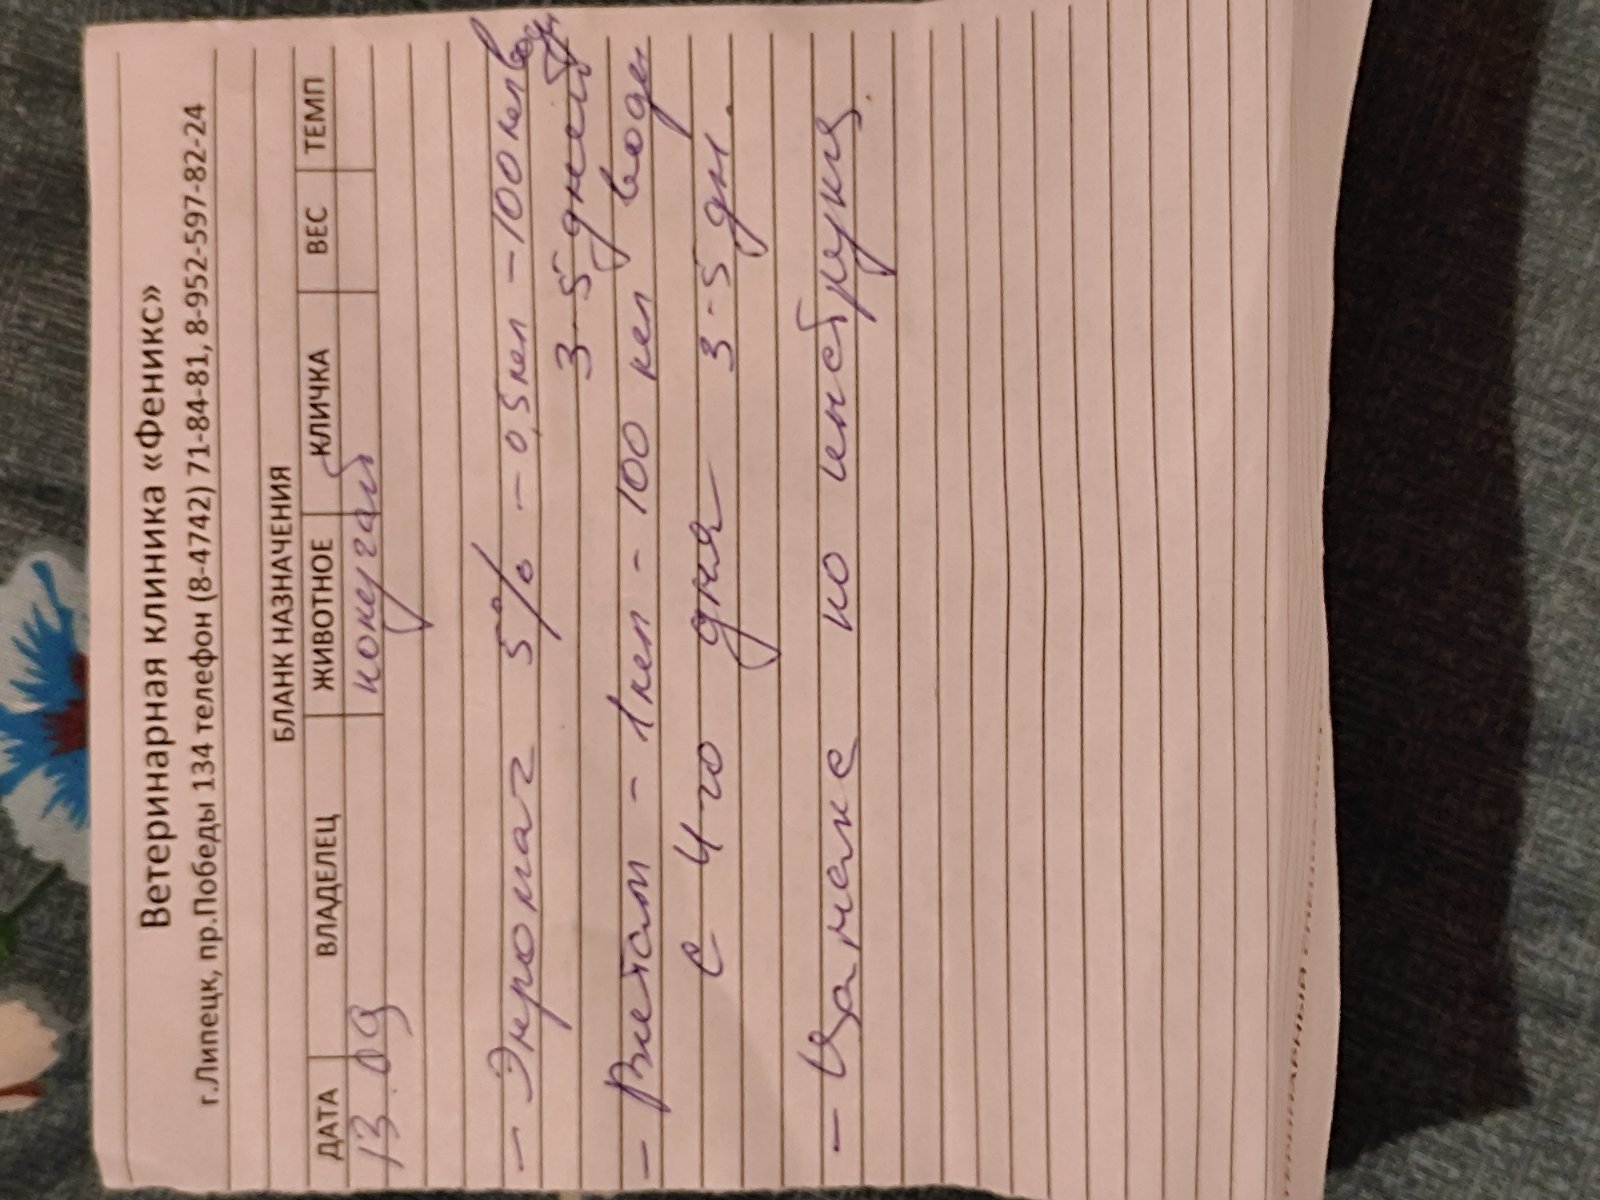 Ветеринарная клиника «Феникс»
г.Липецк, пр.Победы 134 телефон (8-4742) 71-84-81, 8-952-597-82-24
БЛАНК НАЗНАЧЕНИЯ
ДАТА ВЛАДЕЛЕЦ ЖИВОТНОЕ КЛИЧКА ВЕС ТЕМП
13.09 попугай
- 5% - 0,5 мл - 100 мл воды
3-5 дней
- Ветом - 1 мл - 100 мл воды
с 4 го дня 3-5 дн.
- по инструкц.